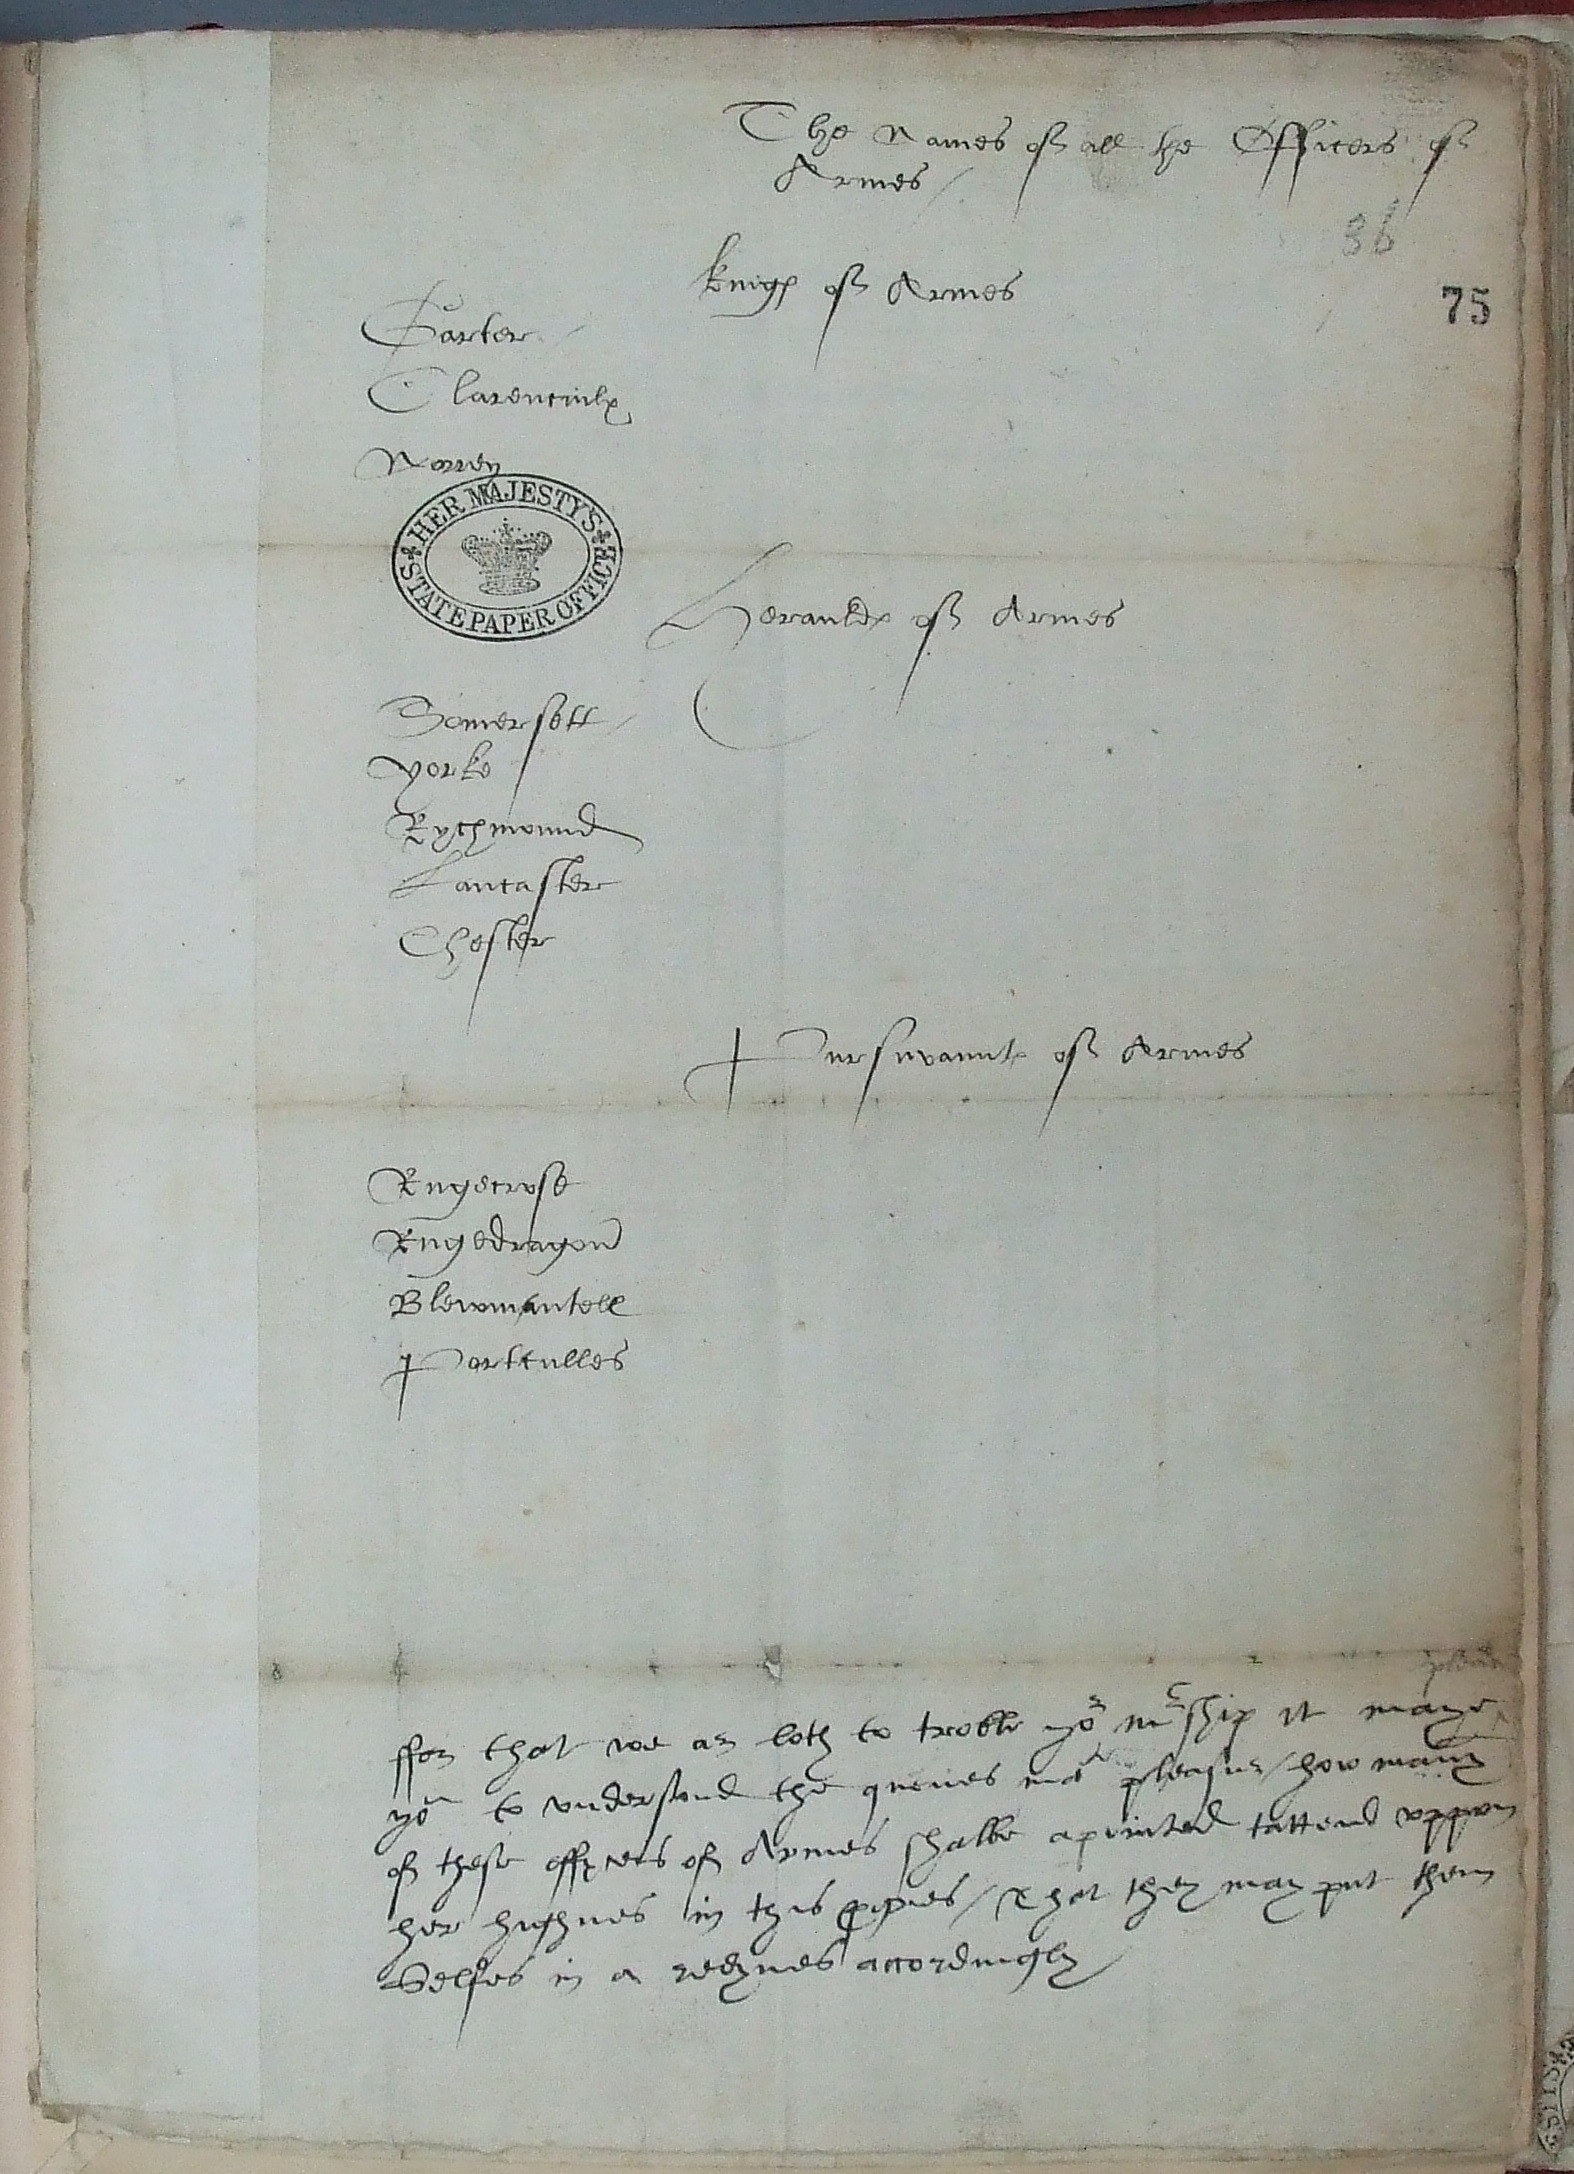 The Names of all the Officers of
Armes
36
kinges of Armes
75
Garter
Clarenciulx
Norrey
HER MAJESTY'S
STATE PAPER OFFICE
Herauldes of Armes
Somersett
Yorke
Rychmound
Lancaster
Chester
Pursuvauntes of Armes
Rugecrose
Rugedragon
Blewmantell
Portculles
please
ffor that we ar loth to troble yor mrship it maye
yo to understand the quenes mates pleasur / how many
of these offycers of Armes shalbe apointed tattend uppon
her highnes in this progres / & that they may put them
Selfes in a redynes accordingly